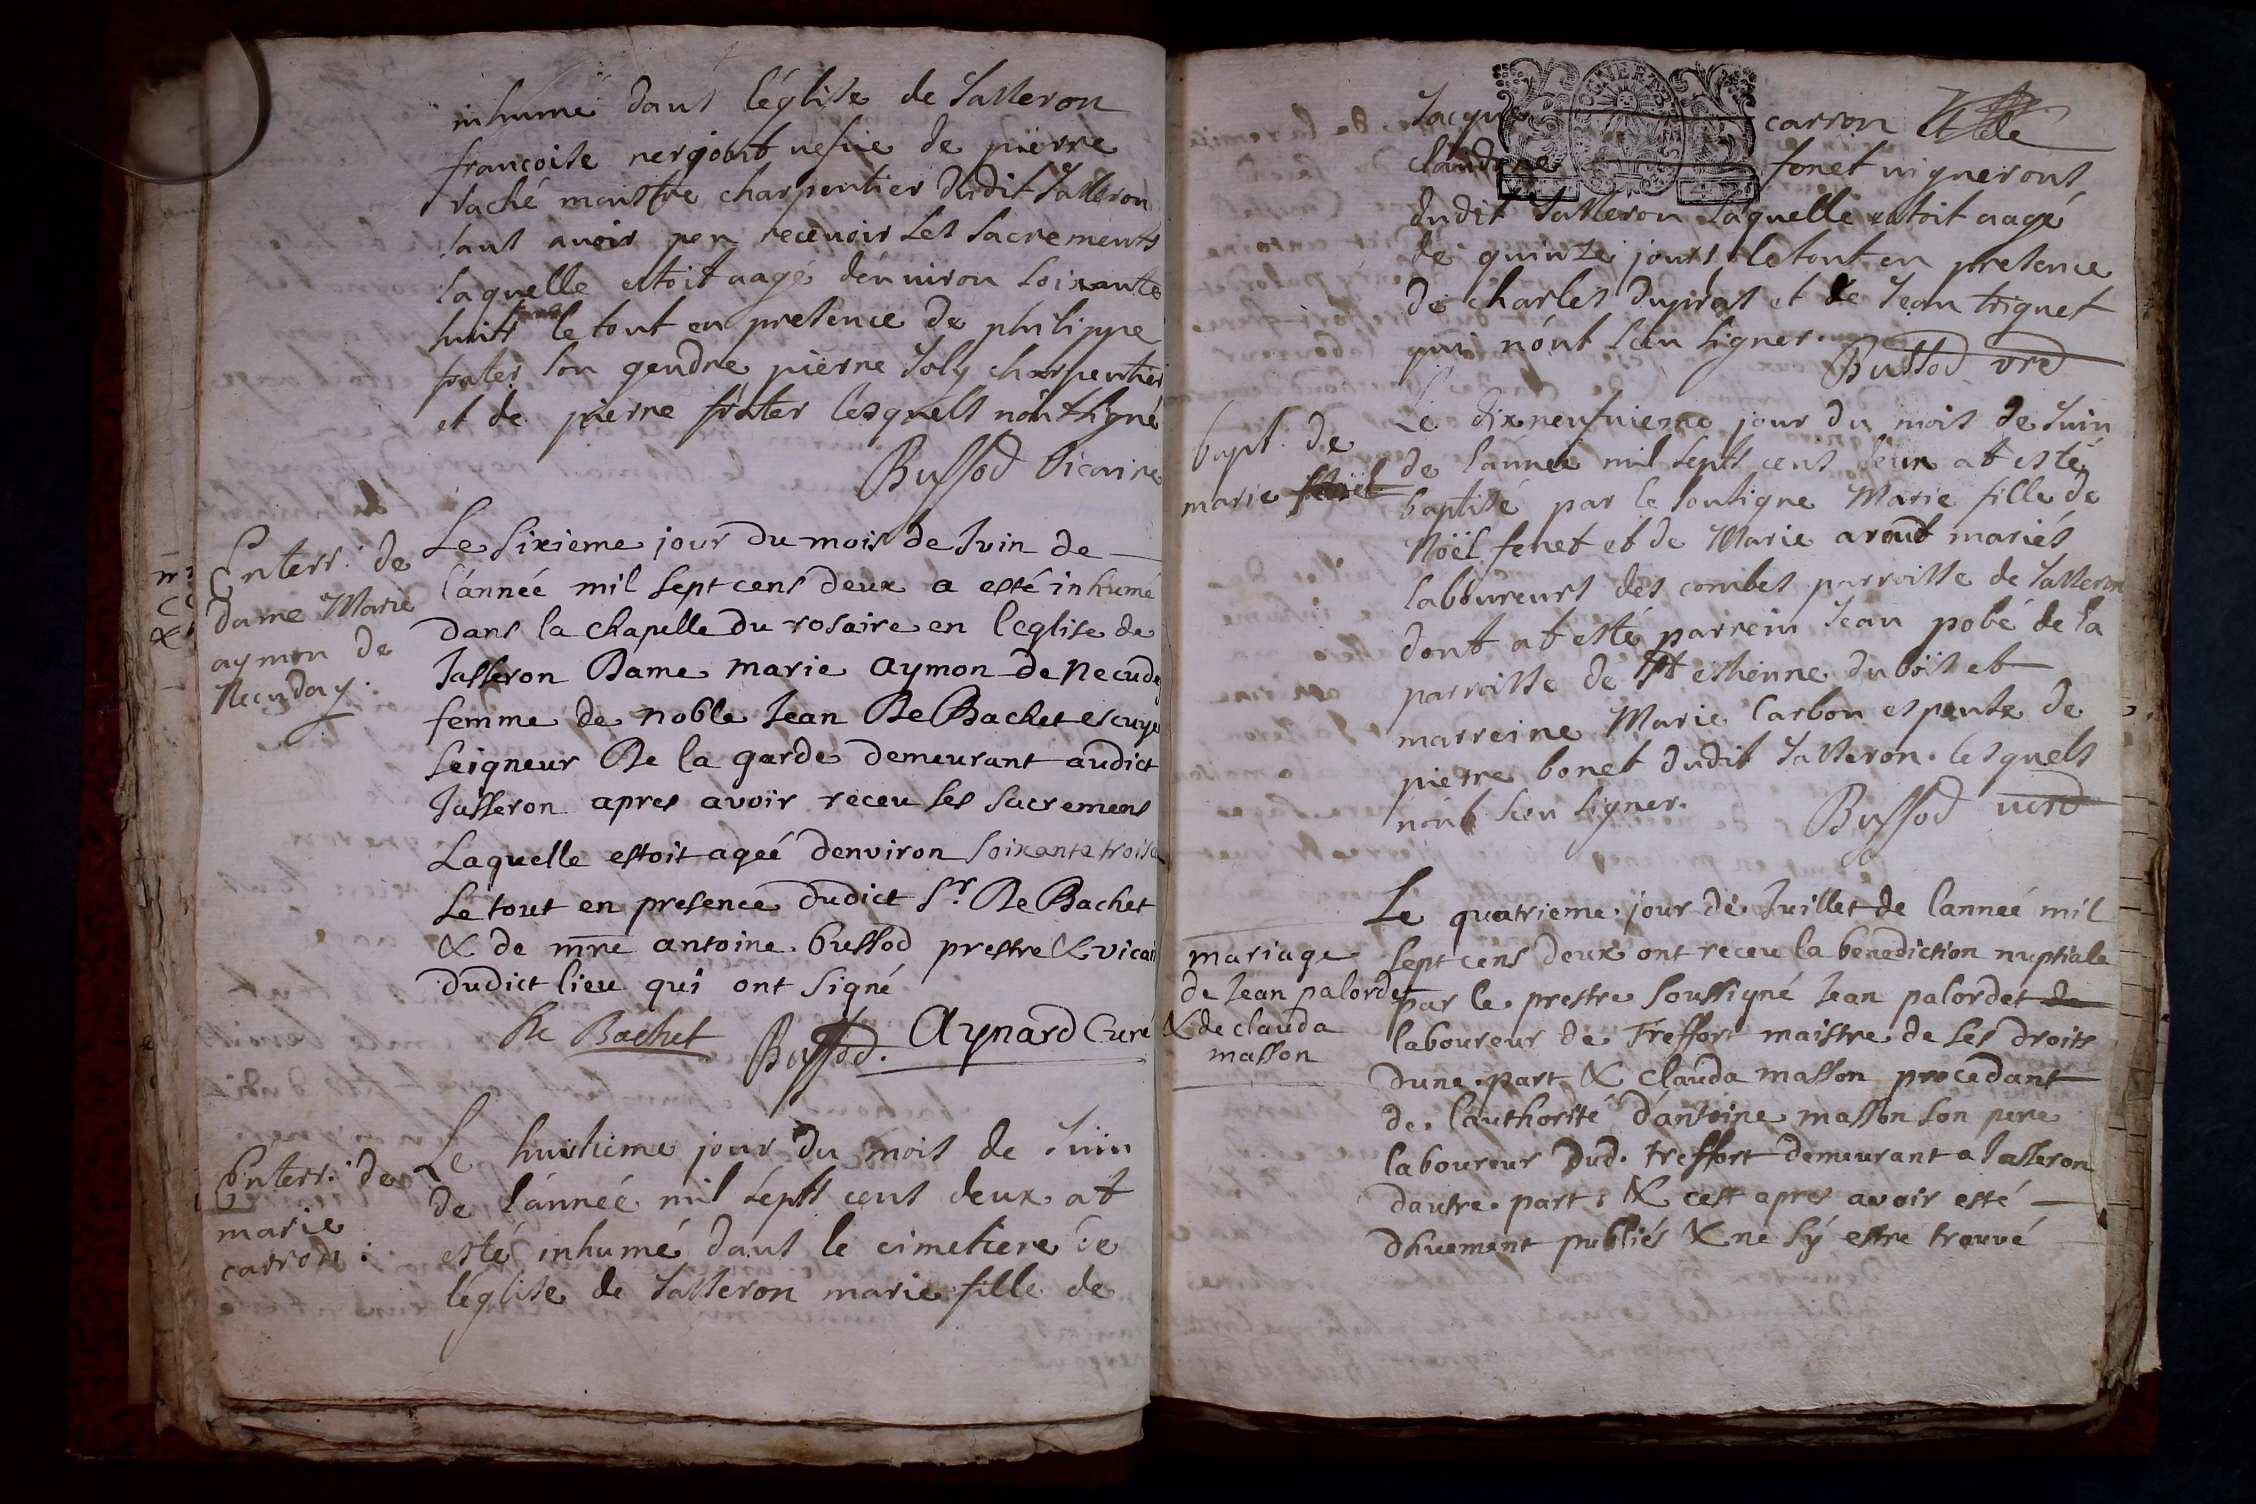 inhumé dans l'église de Jasseron
françoise nergout vefue de pierre
vaché maistre charpentier dudit Jasseron
sans avoir peu recevoir les sacrements
laquelle estoit aagé d'environ soixante
huit ans le tout en presence de philippe
frater son gendre pierre Joly charpentier
et de pierre frater lesquels n'ont signé
Bussod vicaire
Enterr: de
dame Marie
aymon de
Necuday:
Le sixieme jour du mois de Juin de
l'année mil sept cens deux a esté inhumé
dans la chapelle du rosaire en l'eglise de
Jasseron Dame marie aymon de Necude
femme de noble Jean De Bachet escuye
seigneur De la garde demeurant audict
Jasseron apres avoir receu les sacremens
Laquelle estoit ageé denviron soixante trois a
Le tout en presence dudict Sr. De Bachet
& de mre antoine bussod prestre & vicai
dudict lieu qui ont signé
De Bachet Bussod. Aynard Curé
Enterr: de
marie
carron:
Le huitieme jour du mois de Juin
de l'année mil sept cens deux at
esté inhumé dans le cimetiere de
l'église de Jasseron marie fille de
Jacque carron
Claudine fonet vignerons
dudit Jasseron Laquelle estoit aagé
de quinze jours le tout en presence
de charles dupras et de Jean triquet
qui n'ont sceu signer.
Bussod vre
bapt. de
marie
Le dixneufvieme jour du mois de Juin
de l'année mil sept cens deux at esté
baptisé par le soutigne Marie fille de
Nöel fenet et de Marie arout mariés
laboureurs des combes parroisse de Jasseron
dont at esté parrein Jean pobé de la
parroisse de St estienne du bois et
marreine Marie Carbon espouse de
pierre bonet dudit Jasseron. lesquels
n'ont sceu signer. Bussod vicre
mariage
de Jean palordet
& de clauda
masson
Le quatrieme jour de Juillet de l'anneé mil
sept cens deux ont receu la benediction nuptiale
par le prestre soussigné Jean palordet de
laboureur de Treffort maistre de ses droits
dune part & clauda masson procedant
de l'authorité d'antoine masson son pere
laboureur dud. treffort demeurant a Jasseron
dautre part; & cest apres avoir esté
dhuement publiés & ne s'y estre trouvé